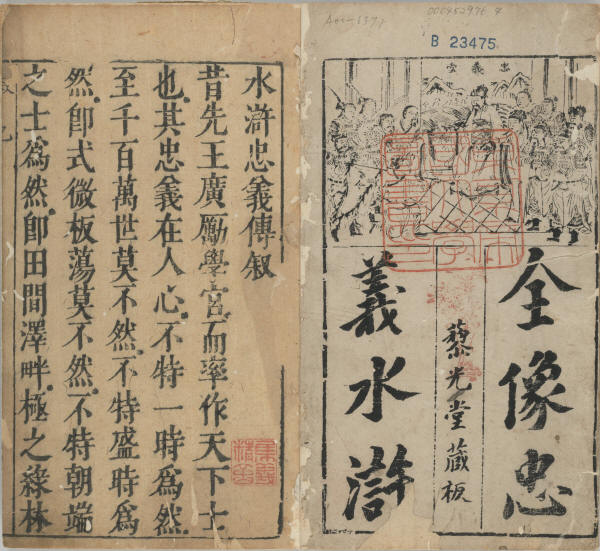 B 23475
忠義堂
全像忠
藜光堂藏板
義水滸
水滸忠義傳叙
昔先王廣勵學官而率作天下士
也其忠義在人心不特一時爲然
至千百萬世莫不然不特盛時爲
然卽式微板蕩莫不然不特朝端
之士爲然卽田間澤畔極之綠林